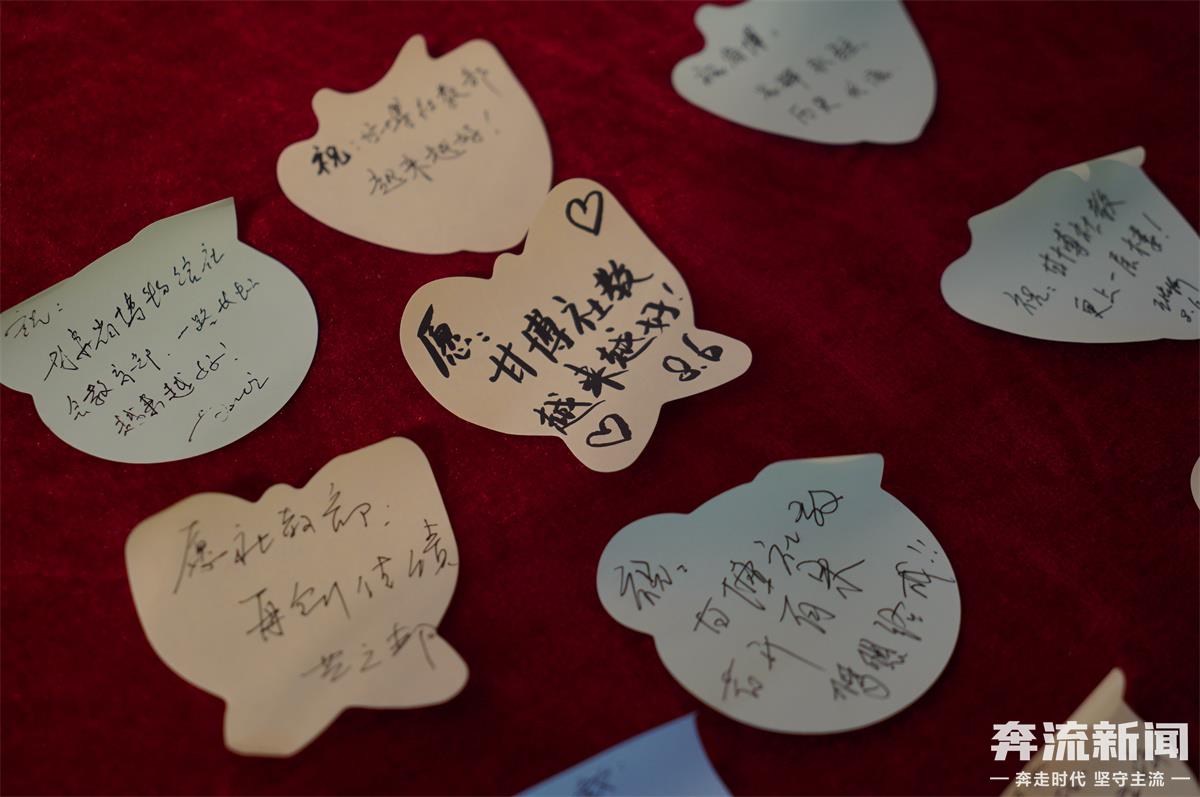 祝：甘博社教部
越来越好！
祝甘博，
祝：甘博社教
更上一层楼！
8.6
愿：
甘博社教
越来越好！
8.6
祝：
甘肃省博物馆社
会教育部，一路长虹
越来越好！
愿社教部：
再创佳绩
祝：
甘博社教
奋斗有果
梦想终成!!
奔流新闻
奔走时代 坚守主流